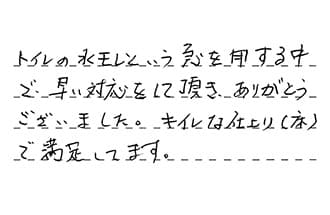 トイレの水モレという急を用する中
で、早い対応をして頂き、ありがとう
ございました。キイレな仕上り(床)
で満足してます。